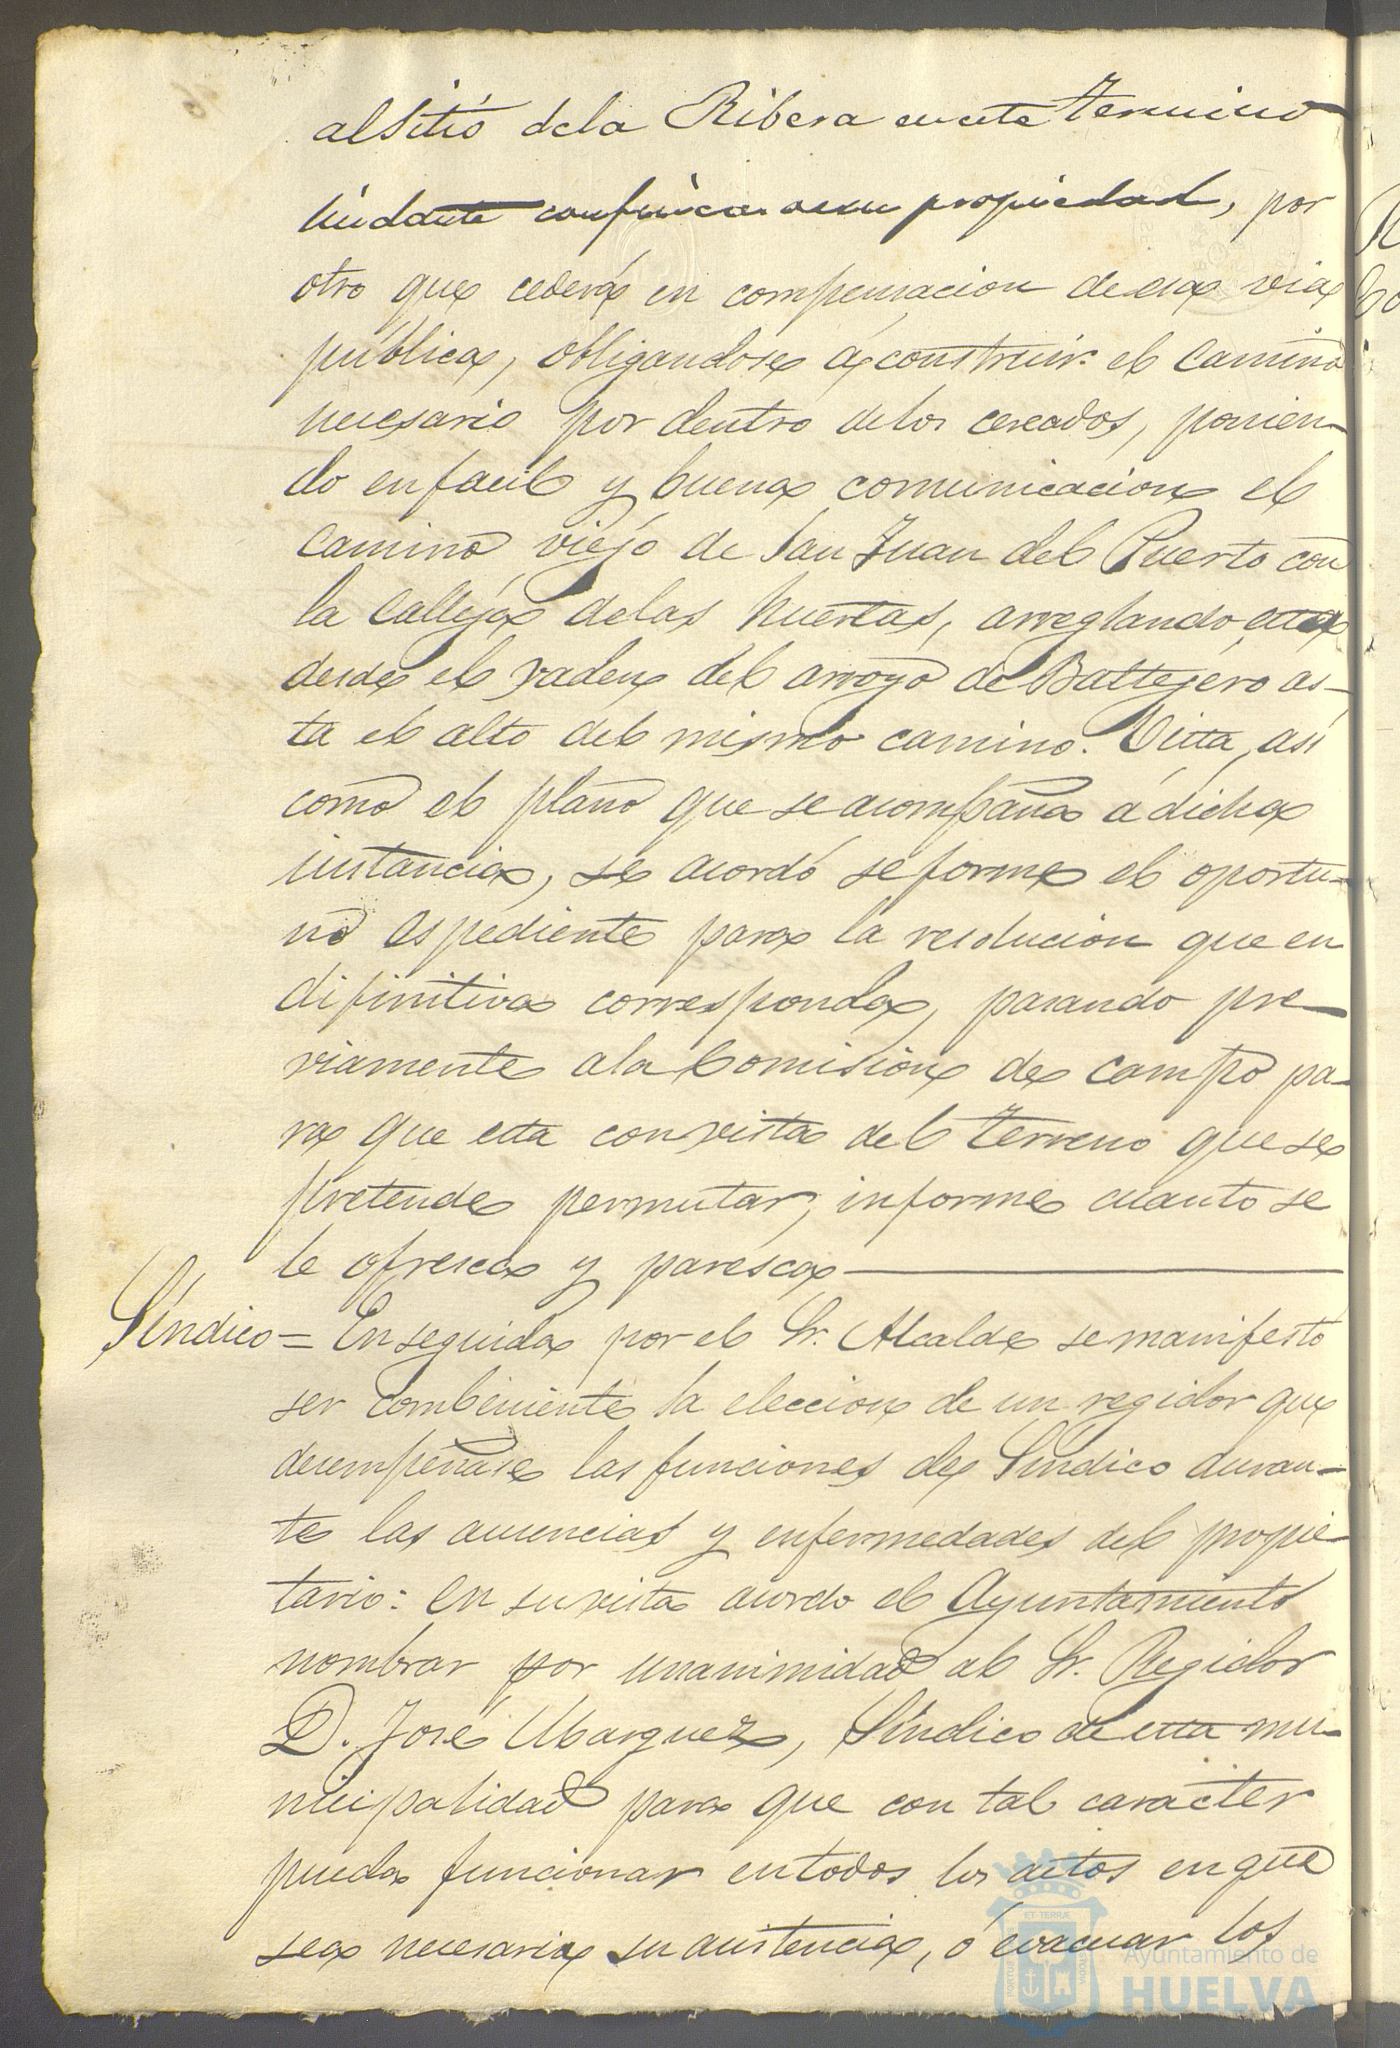 al sitio dela Ribera en este termino
lindante con fincas de su propiedad, por
otro que cederá en compensacion de esa via
pública, obligandose á construir el camino
necesario por dentro delos cercados, ponien-
do en facil y buena comunicacion el
camino viejo de San Juan del Puerto con
la Calleja delas huertas, arreglando esta
desde el vaden del arroyo de Baltejero as-
ta el alto del mismo camino. Vista, asi
como el plano que se acompaña á dicha
instancia, se acordó se forme el oportu-
no espediente para la resolucion que en
difinitiva corresponda, pasando pre-
viamente ala Comision de campo pa-
ra que esta con vista del terreno que se
pretende permutar, informe cuanto se
le ofresca y paresca
Síndico = En seguida por el Sr. Alcalde se manifestó
ser combeniente la eleccion de un regidor que
desempeñase las funciones de Síndico duran-
te las ausencias y enfermedades del propie
tario: en su vista acordo el Ayuntamiento
nombrar por unanimidad al Sr. Regidor
D. José Marquez, Síndico de esta mu-
nicipalidad para que con tal caracter
pueda funcionar en todos los actos en que
sea necesaria su asistencia, ó evacuar los
Ayuntamiento de
HUELVA